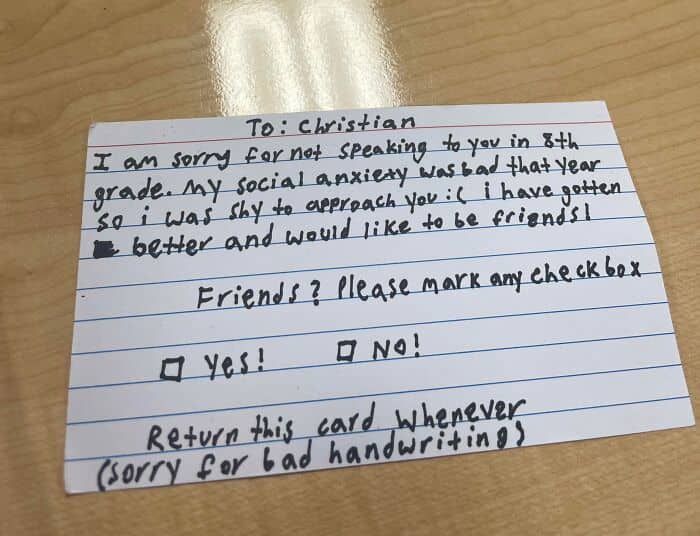 To: Christian
I am sorry for not speaking to you in 8th
grade. My social anxiety was bad that year
so i was shy to approach you :( i have gotten
better and would like to be friends!
Friends? Please mark any checkbox
□ Yes! □ No!
Return this card whenever
(sorry for bad handwriting)